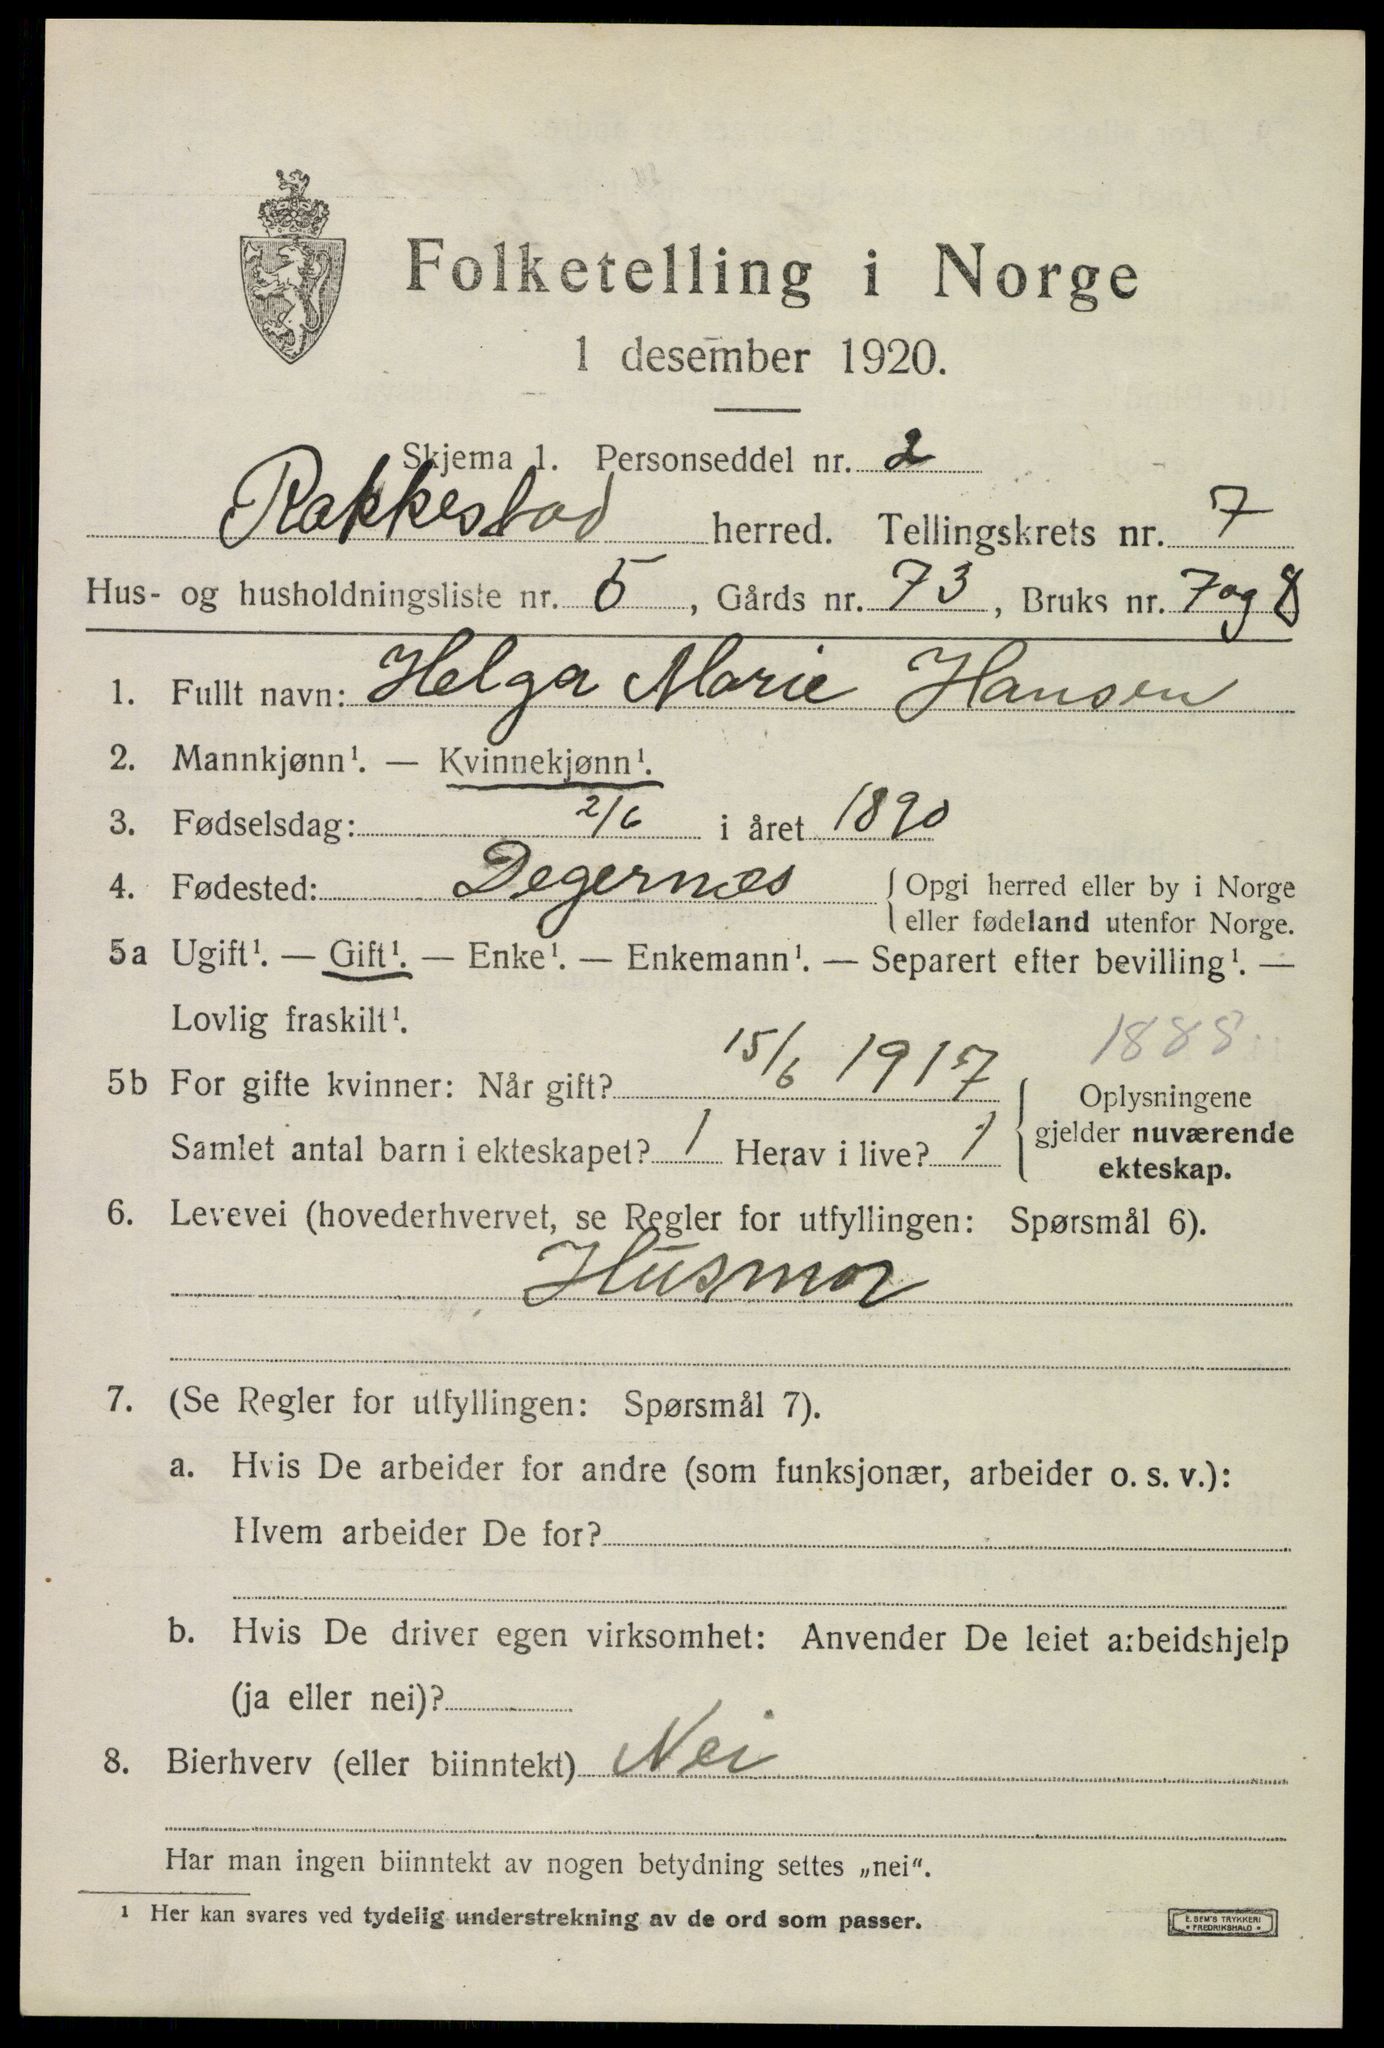 Folketelling i Norge
1 desember 1920.
Skjema 1. Personseddel nr. 2
Rakkestad herred. Tellingskrets nr. 7
Hus- og husholdningsliste nr. 5, Gårds nr. 73, Bruks nr. 7 og 8
1. Fullt navn: Helga Marie Hansen
2. Mannkjønn¹. — Kvinnekjønn¹.
3. Fødselsdag: 2/6 i året 1890
4. Fødested: Degernes { Opgi herred eller by i Norge
eller fødeland utenfor Norge.
5a Ugift¹. — Gift¹. — Enke¹. — Enkemann¹. — Separert efter bevilling¹. —
Lovlig fraskilt¹.
1888
5b For gifte kvinner: Når gift? 15/6 1917
Samlet antal barn i ekteskapet? 1 Herav i live? 1
{ Oplysningene
gjelder nuværende
ekteskap.
6. Levevei (hovederhvervet, se Regler for utfyllingen: Spørsmål 6).
Husmor
7. (Se Regler for utfyllingen: Spørsmål 7).
a. Hvis De arbeider for andre (som funksjonær, arbeider o. s. v.):
Hvem arbeider De for?
b. Hvis De driver egen virksomhet: Anvender De leiet arbeidshjelp
(ja eller nei)?
8. Bierhverv (eller biinntekt) Nei
Har man ingen biinntekt av nogen betydning settes „nei“.
¹ Her kan svares ved tydelig understrekning av de ord som passer.
E. SEM'S TRYKKERI
• FREDRIKSHALD •